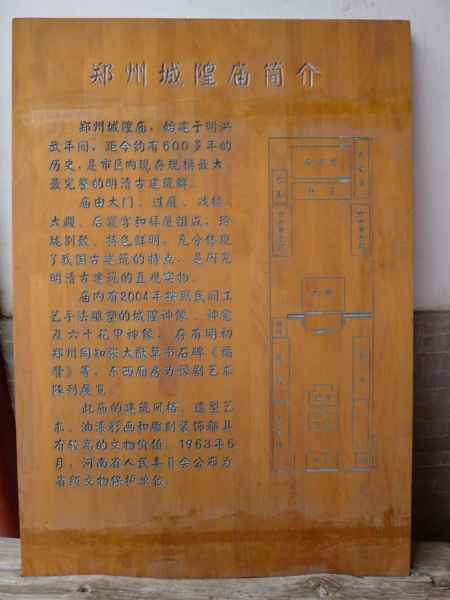 郑州城隍庙简介
郑州城隍庙，始建于明洪
武年间，距今约有600多年的
历史，是市区内现存规模最大、
最完整的明清古建筑群。
庙由大门、过庭、戏楼、
大殿、后寝宫和拜厦组点，玲
珑别致、特色鲜明，充分体现
了我国古建筑的特点，是研究
明清古建筑的直观实物。
庙内有2004年按照民间工
艺手法雕塑的城隍神像、神龛
及六十花甲神像，存有明初
郑州同知张大猷草书石碑《福
赞》等，东西厢房为豫剧艺术
陈列展览。
此庙的建筑风格、造型艺
术、油漆彩画和雕刻装饰都具
有较高的文物价值。1963年6
月，河南省人民委员会公布为
省级文物保护单位。
大殿